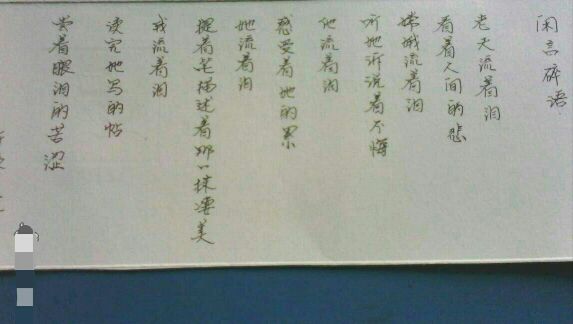 闲言碎语
老天流着泪
看着人间的悲
嫦娥流着泪
听她诉说着不悔
他流着泪
感受着她的累
她流着泪
提着笔描述着那一抹凄美
我流着泪
读完她写的帖
尝着眼泪的苦涩